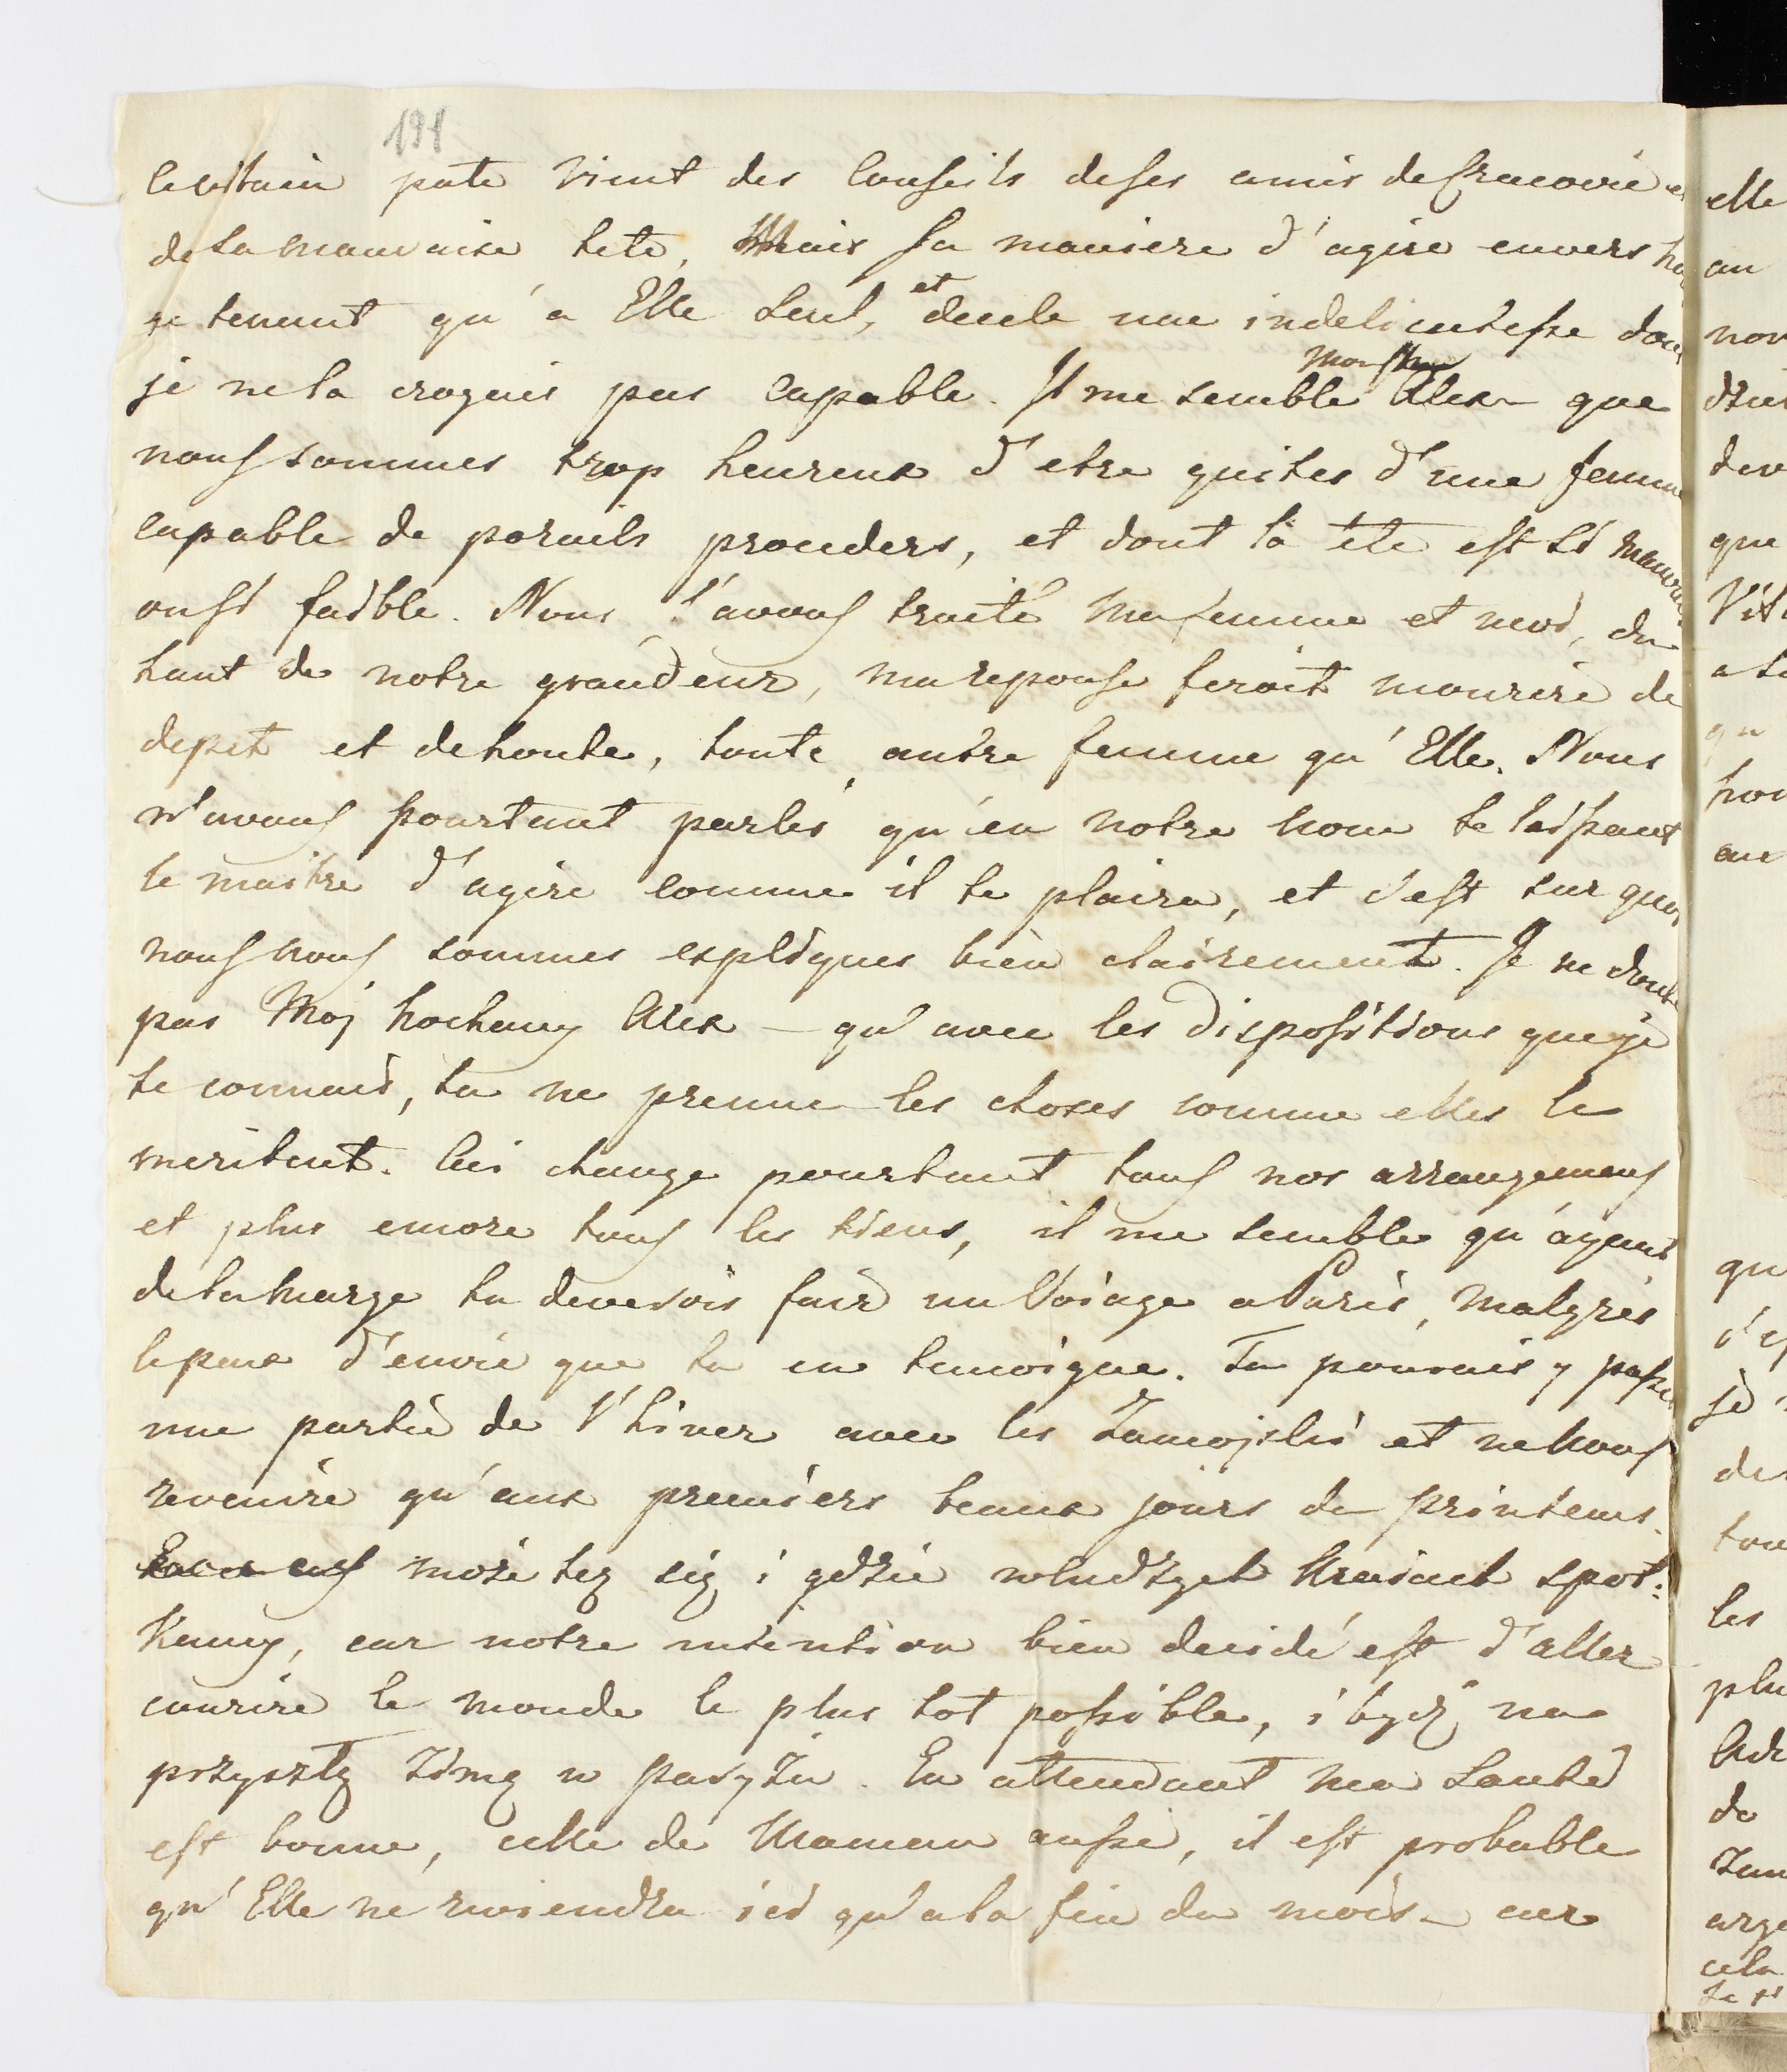 191
vient des Conseils de ses amis de Cracovie et
de la mauvaise tete. Mais sa maniere d'agire envers
ne tenant qu'a Elle seul, et decele une indelicatesse dont
je ne la croyais pas capable. Il me semble Mon cher Alex – que
nous sommes trop heureux d'etre quites d'une femme
capable de pareils proceders, et dont la tete est si mauvaise
ou si faible. Nous l'avons traité ma femme et moi, du
haut de notre grandeur, ma reponse feroit mourire de
depit et de honte, toute autre femme qu'Elle. Nous
n'avons pourtant parlés qu'en notre nom te laissant
le maitre d'agire comme il te plaira, et c'est sur quoi
nous nous sommes expliques bien clairement. Je ne doute
pas Moj kochany Alex – qu'avec les dispositions que je
te connais, tu ne prenne les choses comme elles le
meritent. Ceci change pourtant tous nos arrangemens
et plus encore tous les tiens, il me semble qu'ayant
de la marge tu deverois faire un Voiage a Paris, malgrés
le peux d'envie que tu en temoigne. Tu pourrais y passer
une partie de l'hiver avec les Zamojski et ne nous
revenire qu'aux premiers beaux jours du printems.
może też się i gdzie w cudzych Krajach spot:
kamy, car notre intention bien decidé est d'aller
courire le monde le plus tot possible, i bydź na
przyszłą zimę w Paryżu. En attendant ma Santé
est bonne, celle de Maman aussi, il est probable
qu'Elle ne reviendra ici qu'a la fin du mois – car
elle
an
que
qu
je
les
plu
do
cela